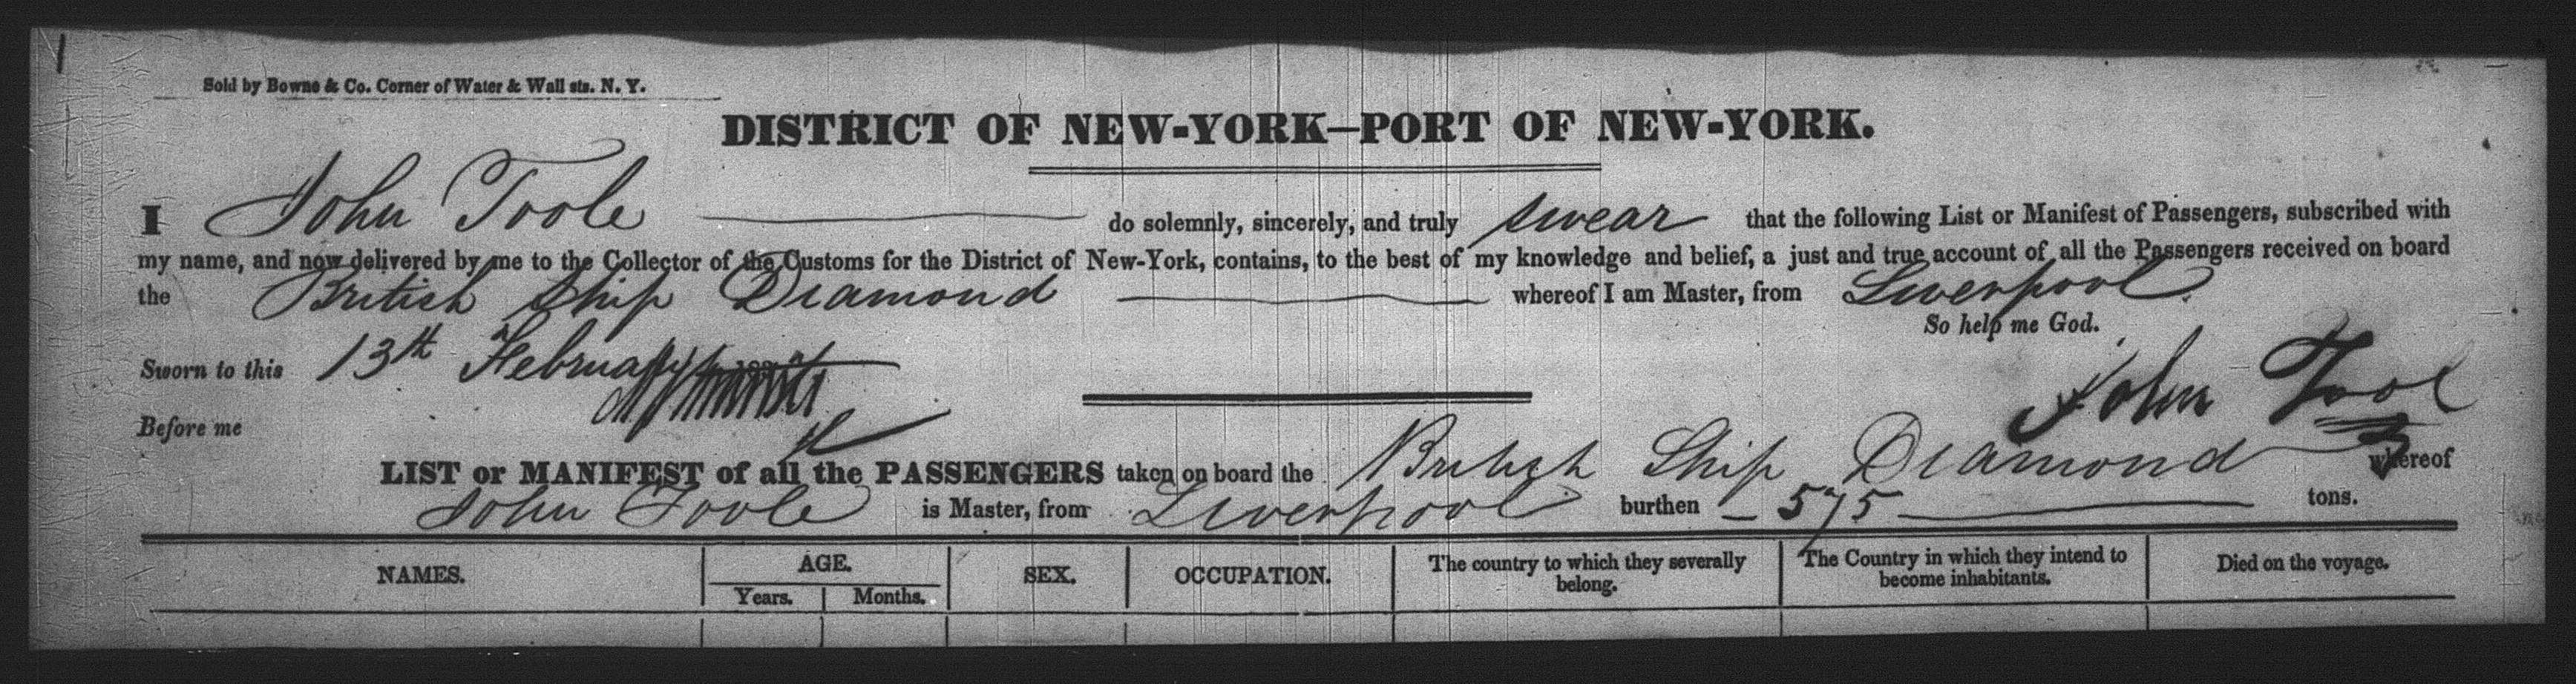 Sold by Bowne & Co. Corner of Water & Wall sts. N. Y.
DISTRICT OF NEW-YORK—PORT OF NEW-YORK.
I John Toole do solemnly, sincerely, and truly swear that the following List or Manifest of Passengers, subscribed with
my name, and now delivered by me to the Collector of the Customs for the District of New-York, contains, to the best of my knowledge and belief, a just and true account of all the Passengers received on board
the British Ship Diamond whereof I am Master, from Liverpool.
So help me God.
Sworn to this 13th February
John Tool
Before me
LIST or MANIFEST of all the PASSENGERS taken on board the British Ship Diamond whereof
John Toole is Master, from Liverpool burthen 575 tons.
NAMES. AGE. SEX. OCCUPATION. The country to which they severally belong. The Country in which they intend to become inhabitants. Died on the voyage.
Years. Months.